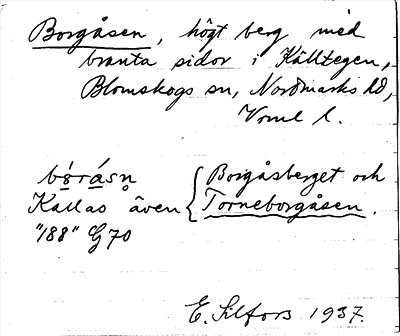 Borgåsen, högt berg med
branta sidor i Källtegen,
Blomskogs sn, Nordmarks hd,
Vrml l.
Borgåsberget och
Kallas även { Torneborgåsen.
"188" G70
E. Silfors 1937.